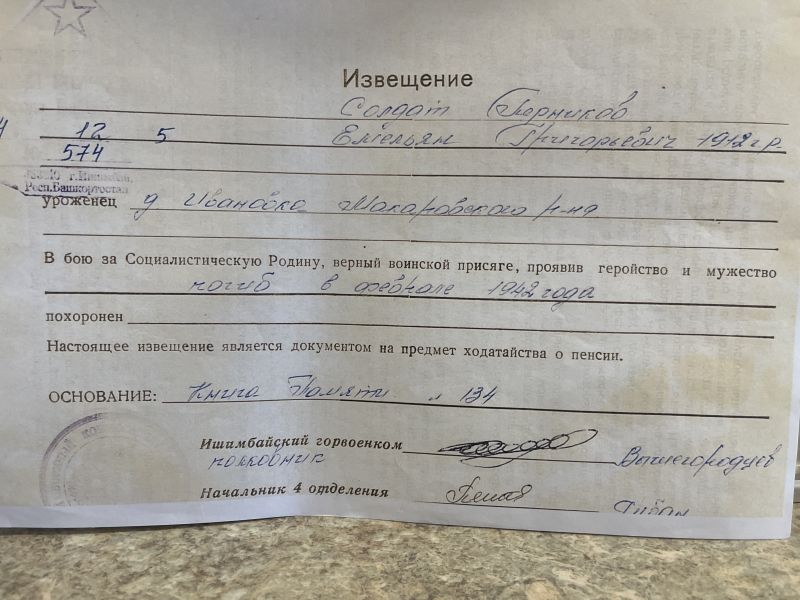 Извещение
Солдат Перников
12 5 Емельян Григорьевич 1912 г.р.
574
Респ.Башкортостан
уроженец д Ивановка Макаровского р-на
В бою за Социалистическую Родину, верный воинской присяге, проявив геройство и мужество
погиб в феврале 1942 года
похоронен
Настоящее извещение является документом на предмет ходатайства о пенсии.
ОСНОВАНИЕ: Книга Памяти 134
Ишимбайский горвоенком
полковник Вышегородцев
Начальник 4 отделения